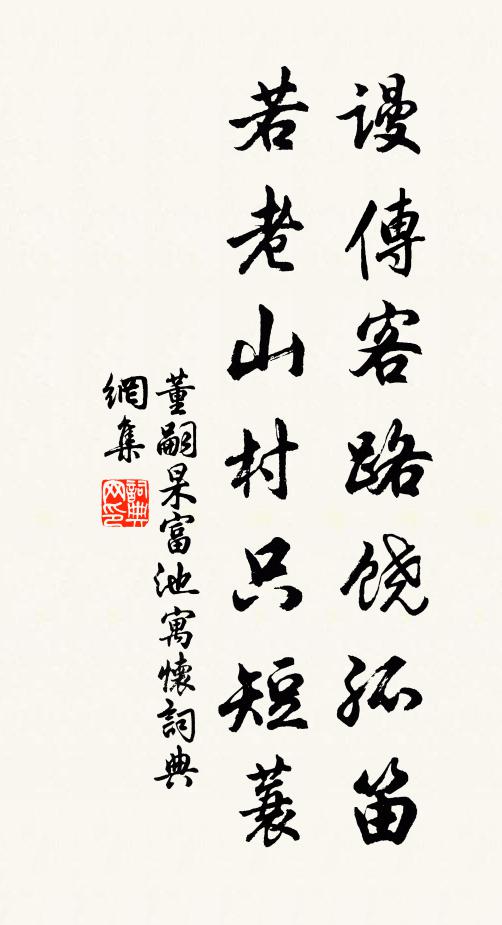 谩傳客路饶孤笛
若老山村只短蓑
董嗣杲富池寓懷詞典
網集
詞典
网印